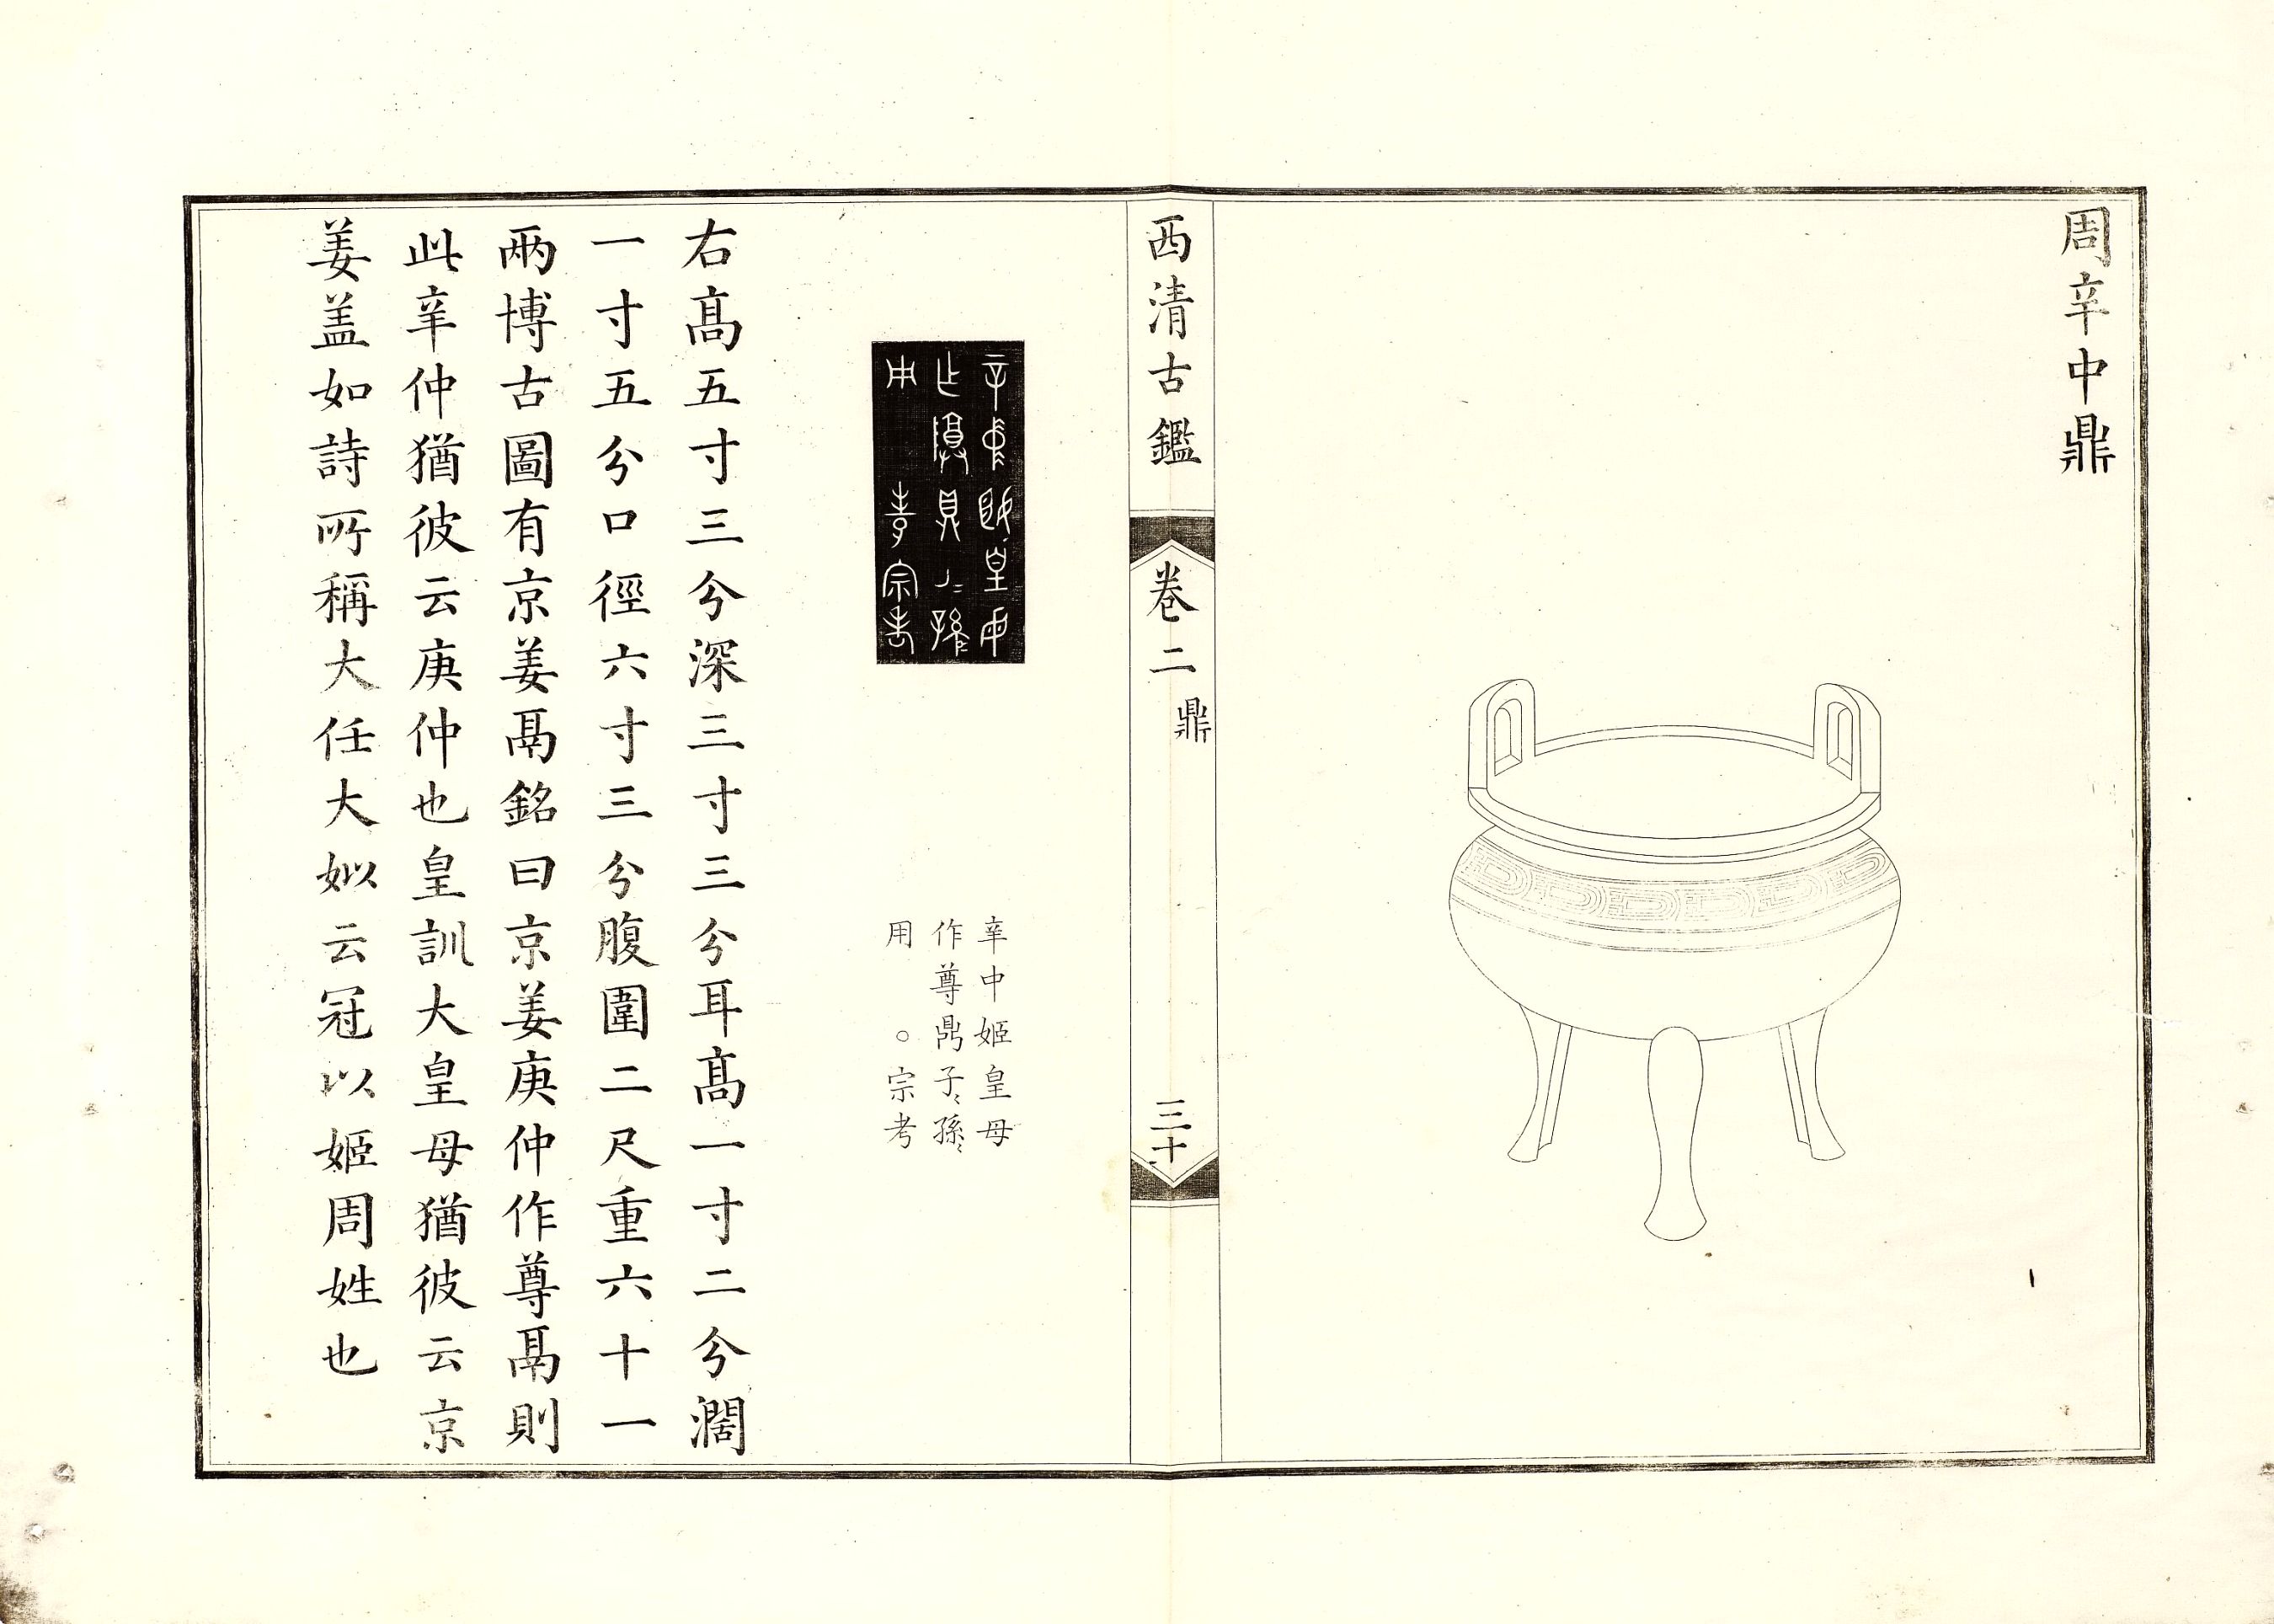 周辛中鼎
西清古鑑
卷二
鼎
三十
辛中姬皇母
作尊鼎子〻孫〻
用　○宗考
右髙五寸三分深三寸三分耳髙一寸二分濶
一寸五分口徑六寸三分腹圍二尺重六十一
兩博古圖有京姜鬲銘曰京姜庚仲作尊鬲則
此辛仲猶彼云庚仲也皇訓大皇母猶彼云京
姜盖如詩所稱大任大姒云冠以姬姬周姓也